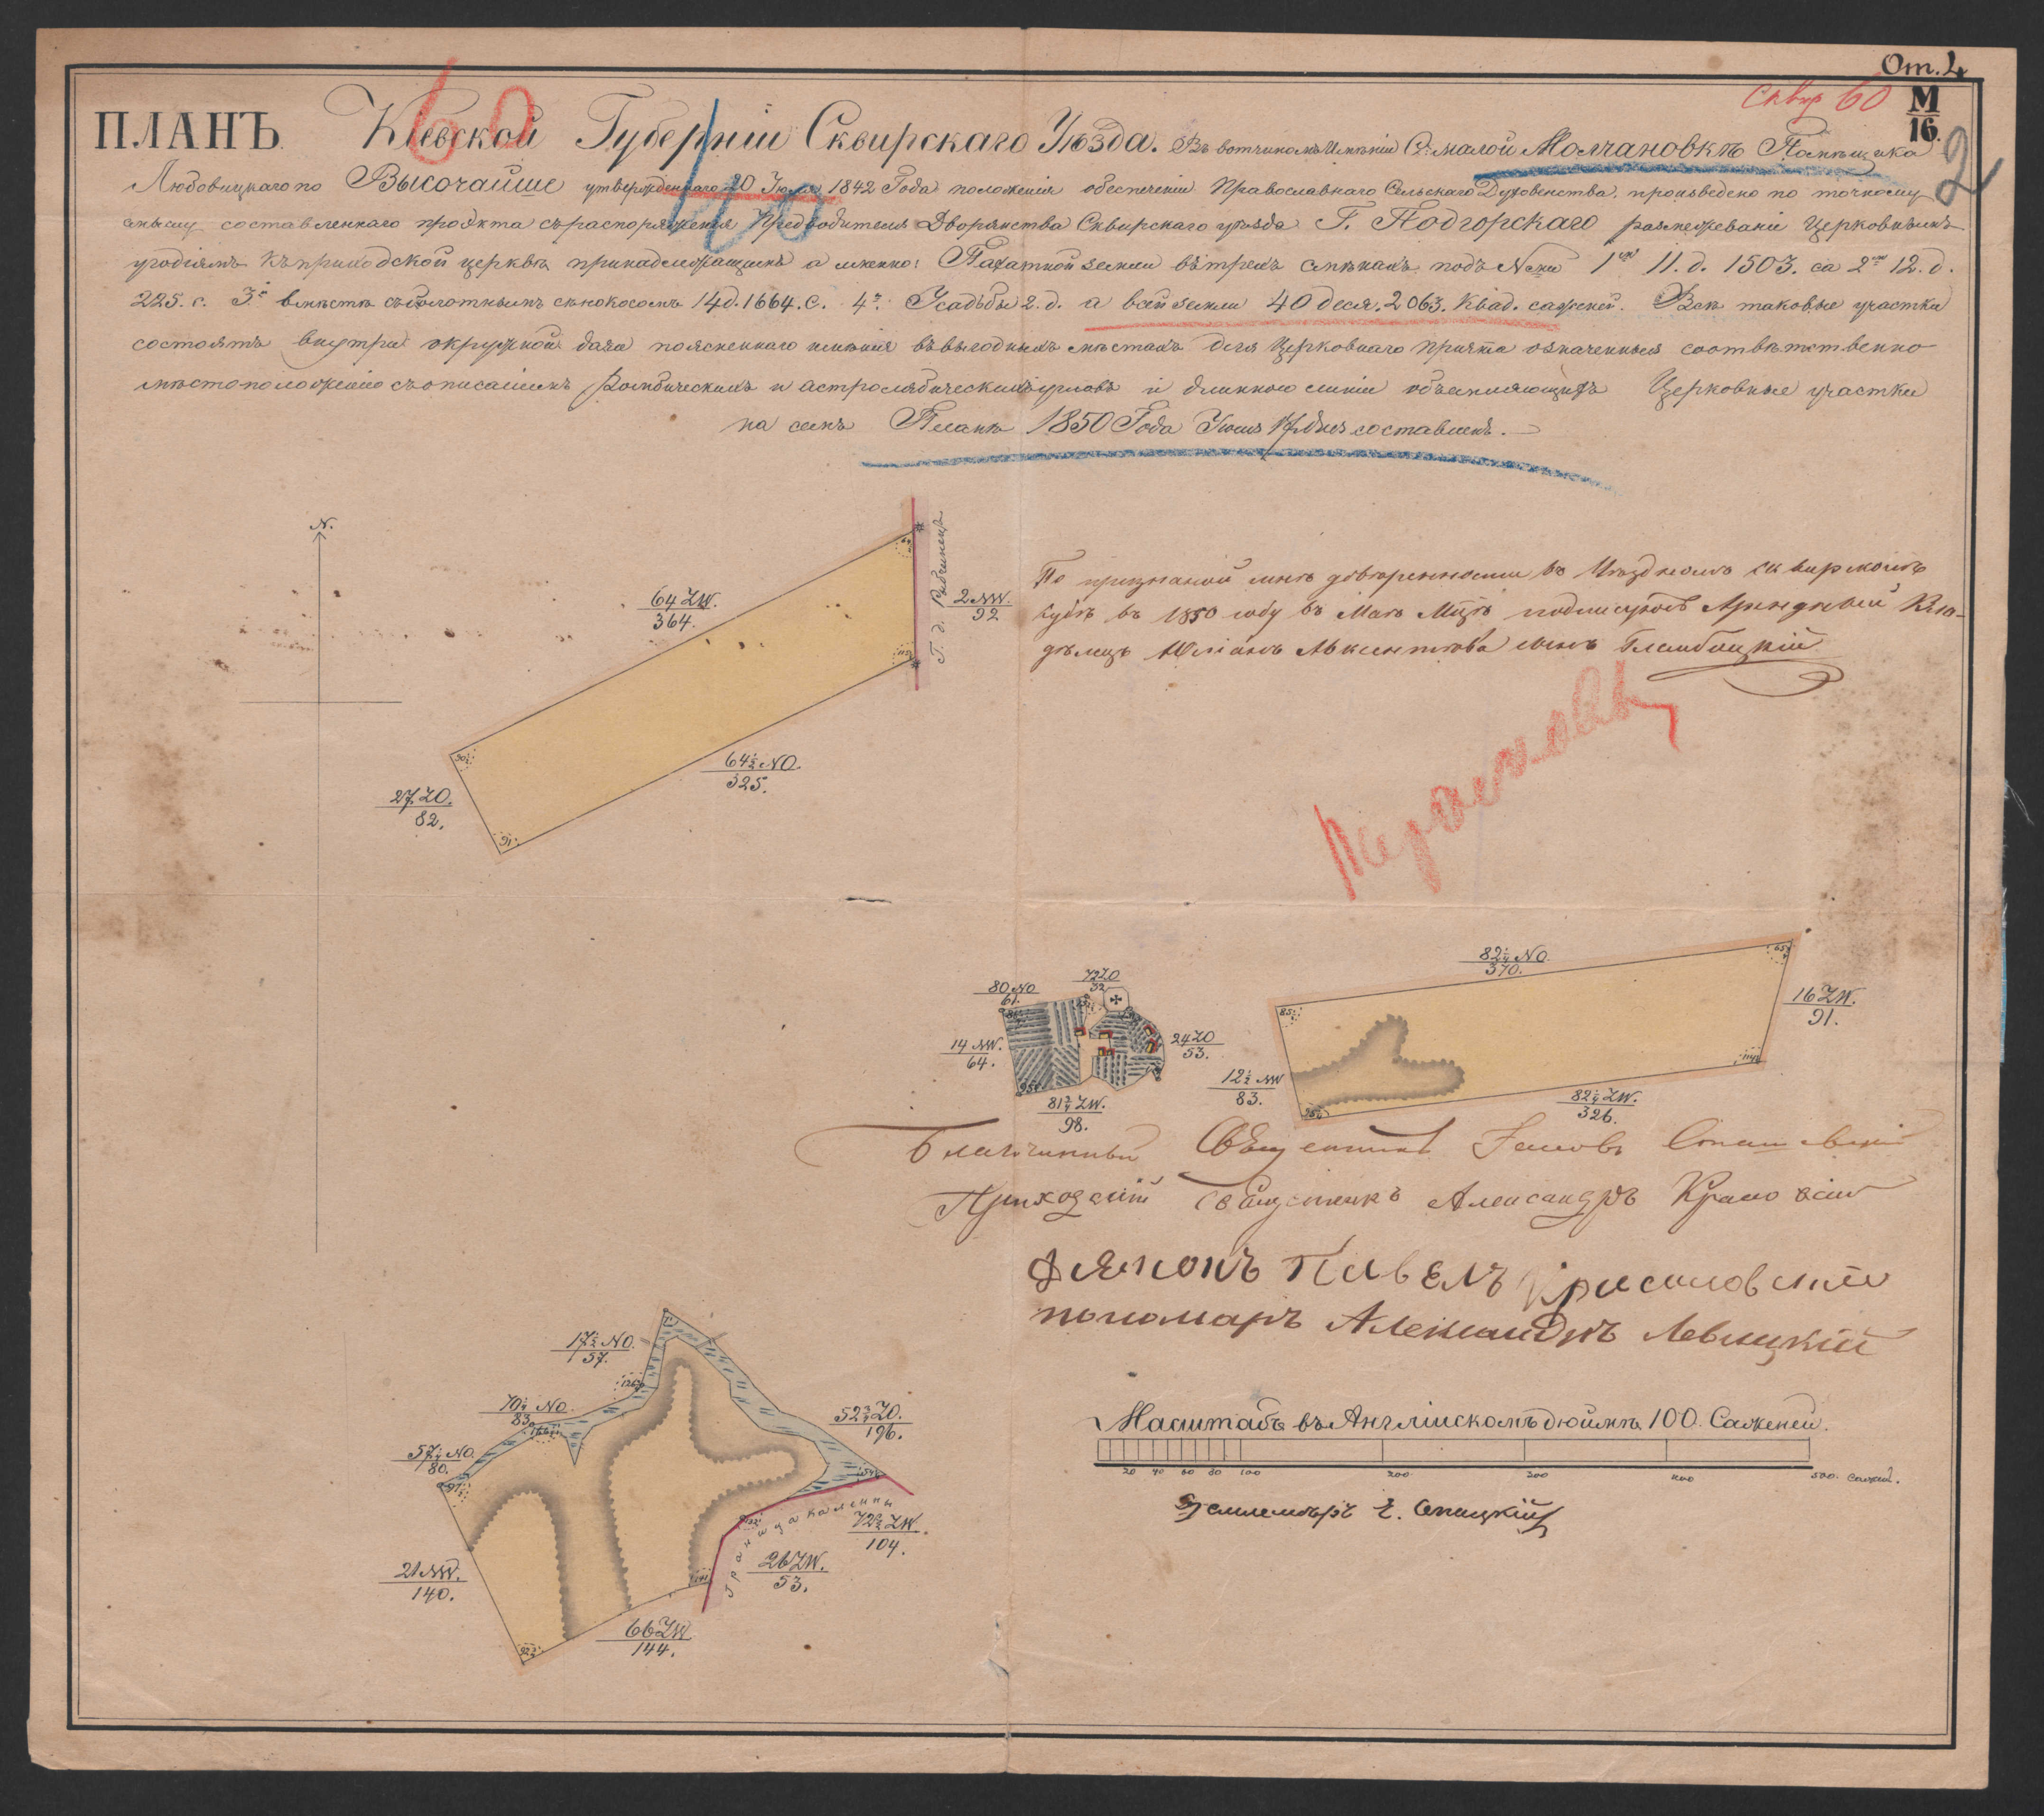 От. 4
Сквир 60
М
16.
2
60
40
ПЛАНЪ Кіевской Губерніи Сквирскаго Уѣзда. Въ вотчиномъ имѣніи С: малой Молчановкѣ Помѣщика
Любовицкаго по Высочайше утвержденнаго 20 Іюля 1842 Года положенія обеспеченіи Православнаго Сельскаго Духовенства, произведено по точному
смыслу составленнаго проэкта съ распоряженія Предводителя Дворянства Сквирскаго уѣзда Г. Подгорскаго размежеваніе Церковнымъ
угодіямъ къ приходской церквѣ принадлежащимъ а именно: Пахатной земли вътрехъ смѣнахъ подъ №ми 1мъ 11. д. 1503. са 2мъ 12. д.
225. с. 3й вмѣстѣ съ болотнымъ сѣнокосомъ 14д. 1664. с. 4й Усадьбы 2. д. а всей земли 40 деся. 2063. квад. саженей. Всѣ таковые участки
состоятъ внутри окружной дачи поясненнаго имѣнія въ выгодныхъ мѣстахъ для Церковнаго причта означенныя соотвѣтственно
мѣстоположенію съ описаніемъ Ромбическихъ и астролябическихъ угловъ и длинною линіи объясняющихъ Церковные участки
на семъ Планѣ 1850 Года Іюня 17 дня составленъ.
N.
64 ZW.
364.
2 NW.
92
Г. д. Рыбчинецъ
64½ NO.
325.
27. ZO.
82.
91
По признаной мнѣ довѣренности въ Уѣздномъ Сквирскомъ
судѣ въ 1850 году въ Маѣ Мцѣ подписуюсъ Арендный Вла-
дѣлецъ Юліанъ Авксентіева сынъ
82¼ NO.
370.
16 ZW.
91.
82¼ ZW.
326.
12½ NW
83.
80 NO
61.
72 ZO
32
24 ZO
53.
14 NW.
64.
81¾ ZW.
98.
Благочинный Священникъ
Приходскій Священникъ Александръ
Дяконъ Павелъ
пономаръ Александръ Левицкій
17½ NO.
57.
70¼ NO.
83.
57¼ NO.
80.
52¾ ZO.
196.
72½ ZW.
104.
26 ZW.
53.
66 ZW
144.
21 NW.
140.
Граница каленны
Масштабъ въ Англіискомъ дюймѣ 100. Саженей.
20 40 60 80 100 200 300 400 500. сажен.
Землемѣръ